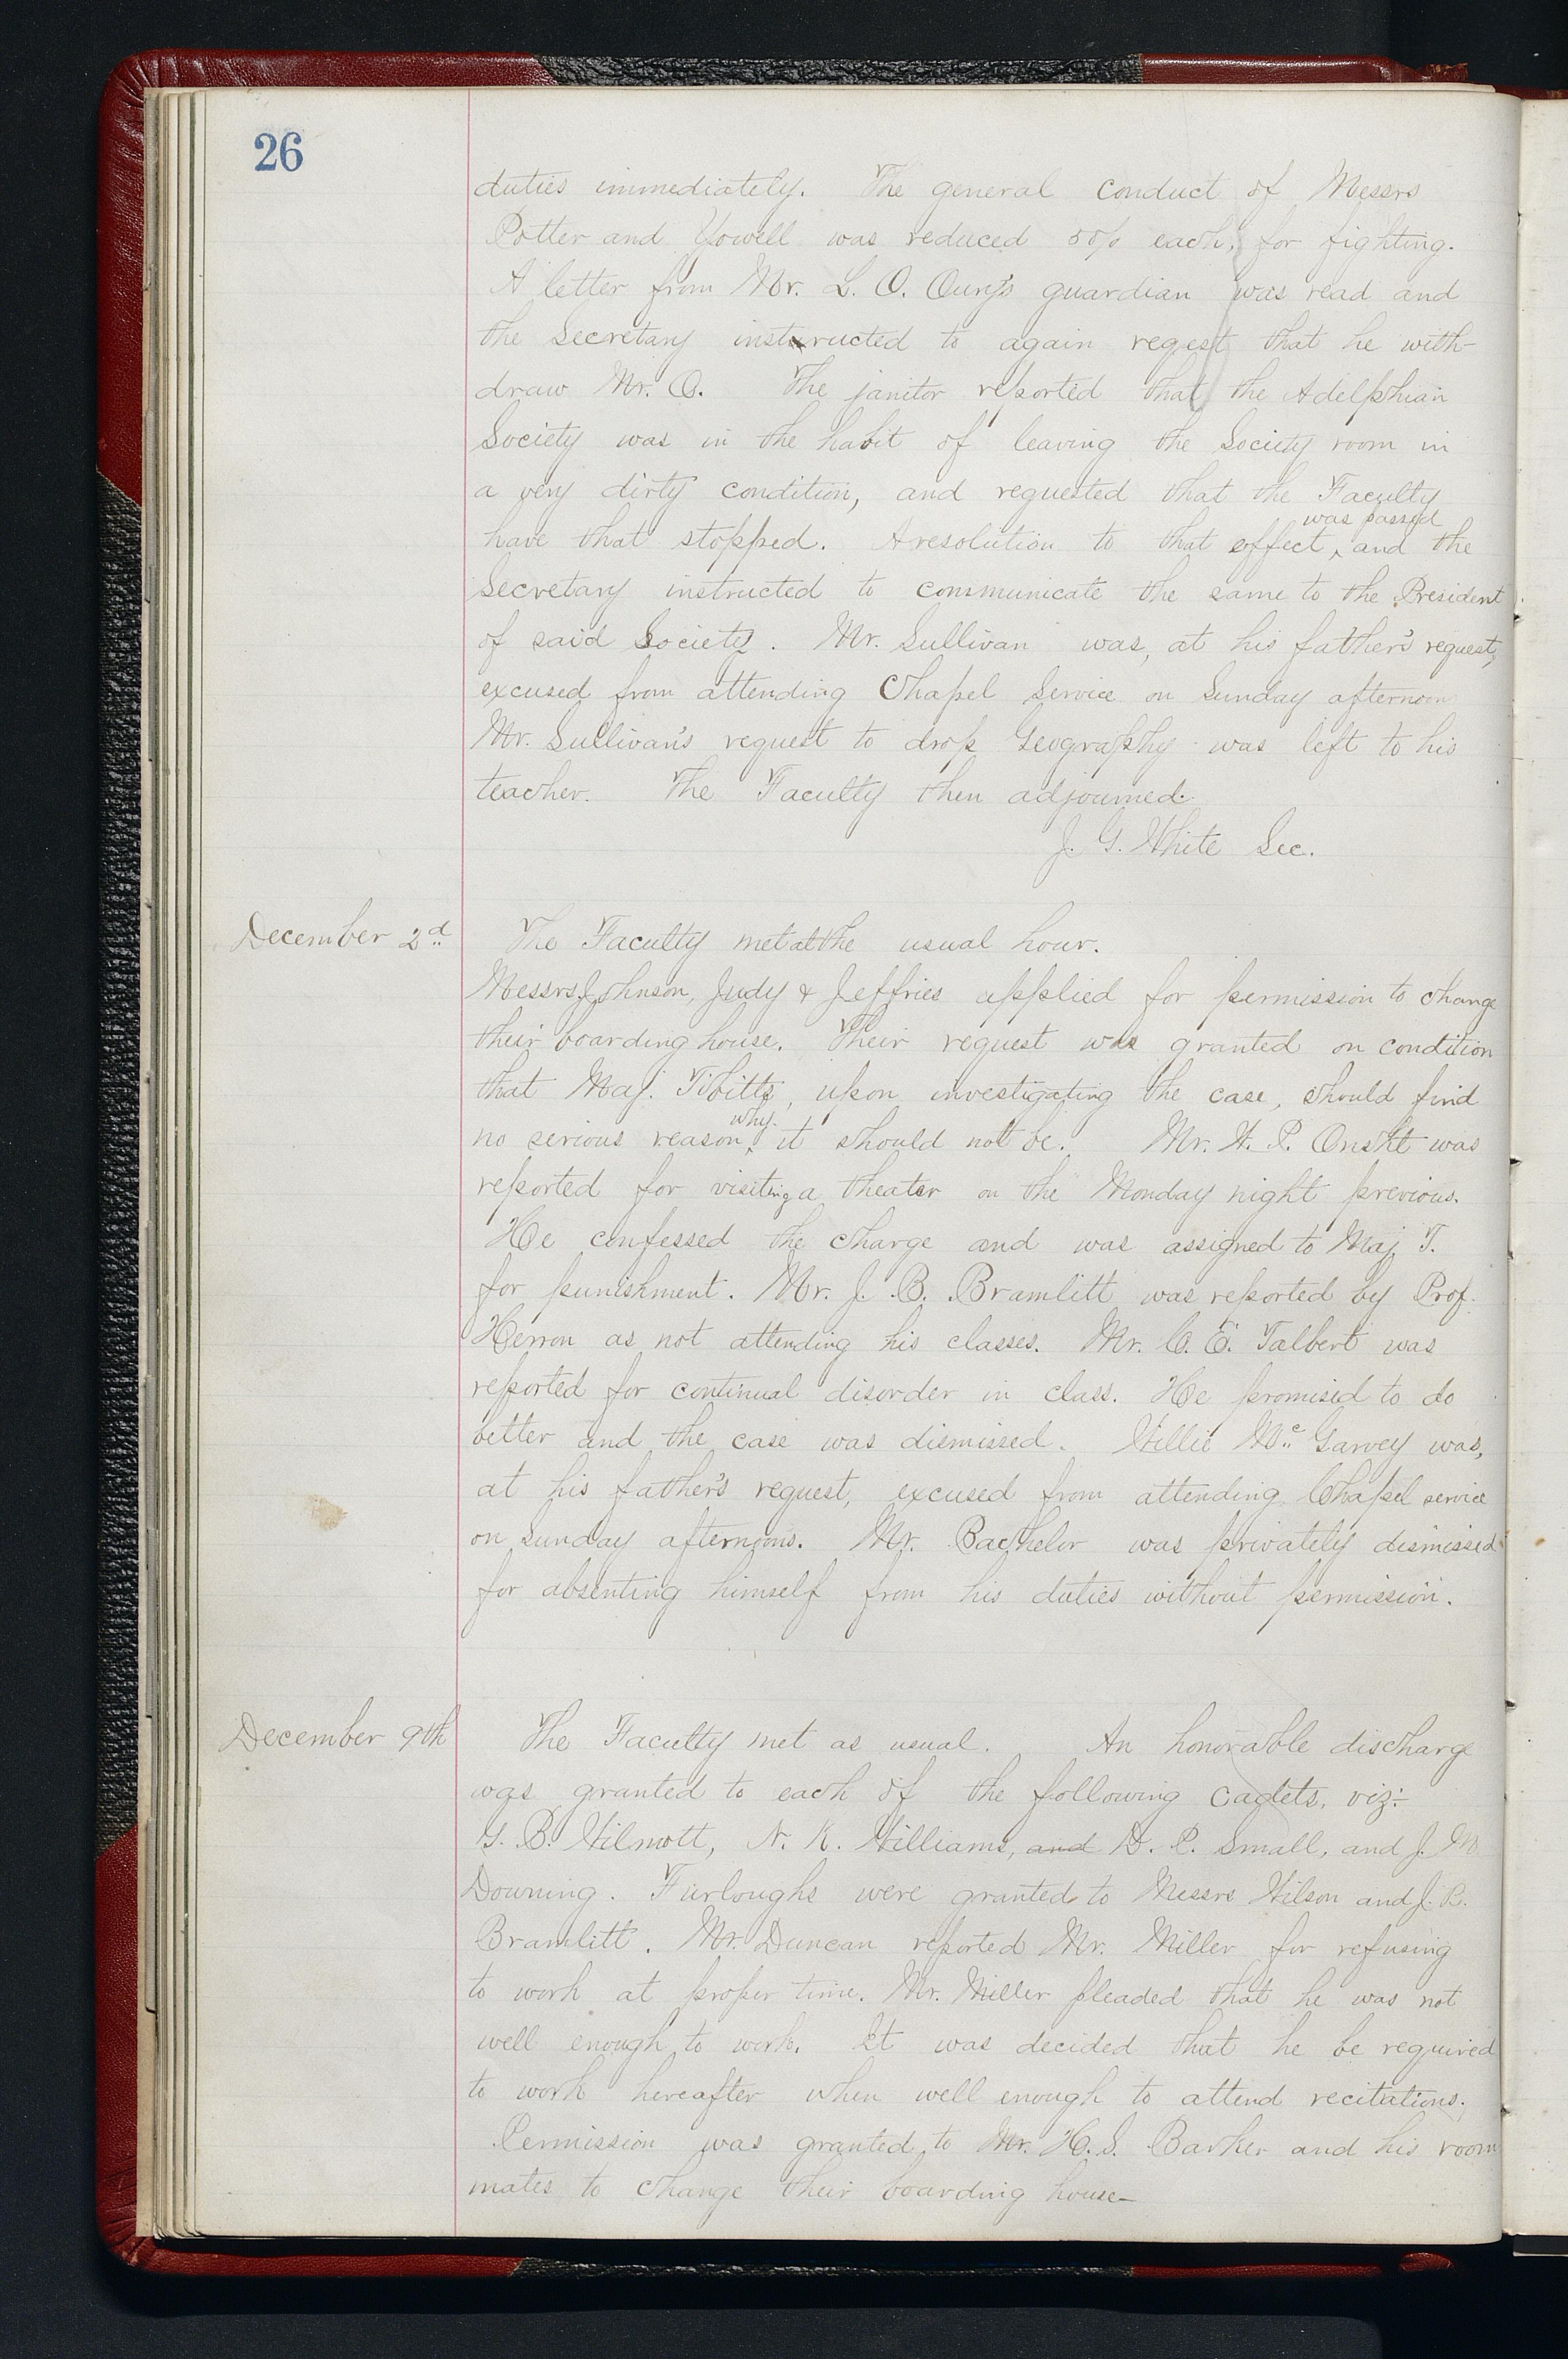 26
duties immediately. The general conduct of Messrs
Potter and Yowell was reduced 50% each, for fighting.
A letter from Mr. L. O. Oury's guardian was read and
the Secretary instructed to again reqest that he with-
draw Mr. O. The janitor reported that the Adelphian
Society was in the habit of leaving the Society room in
a very dirty condition, and requested that the Faculty
was passed
have that stopped. A resolution to that effect, and the
Secretary instructed to communicate the same to the President
of said Society. Mr. Sullivan was, at his father's request,
excused from attending Chapel Service on Sunday afternoon
Mr. Sullivan's request to drop Geography was left to his
teacher. The Faculty then adjourned.
J. G. White Sec.
December 2d The Faculty met at the usual hour.
Messrs Johnson, Judy & Jeffries applied for permission to change
their boarding house. Their request was granted on condition
that Maj. Tibitts, upon investigating the case, should find
why
no serious reason it should not be. Mr. H. P. was
reported for visiting a theater on the Monday night previous.
He confessed the charge and was assigned to Maj T.
for punishment. Mr. J. B. Bramlitt was reported by Prof.
Herron as not attending his classes. Mr. C. E. Talbert was
reported for continual disorder in class. He promised to do
better and the case was dismissed. Willie Mc Garvey was,
at his father's request, excused from attending Chapel service
on Sunday afternoons. Mr. Bachelor was privately dismissed
for absenting himself from his duties without permission.
December 9th The Faculty met as usual. An honorable discharge
was granted to each of the following cadets, viz:
G. B. Wilmott, N. K. Williams, and D. P. Small, and J. M
Downing. Furloughs were granted to Messrs Wilson and J. B.
Bramlitt. Mr. Duncan reported Mr. Miller for refusing
to work at proper time. Mr. Miller pleaded that he was not
well enough to work. It was decided that he be required
to work hereafter when well enough to attend recitations.
Permission was granted to Mr. H. S. Barker and his room
mates to change their boarding house-